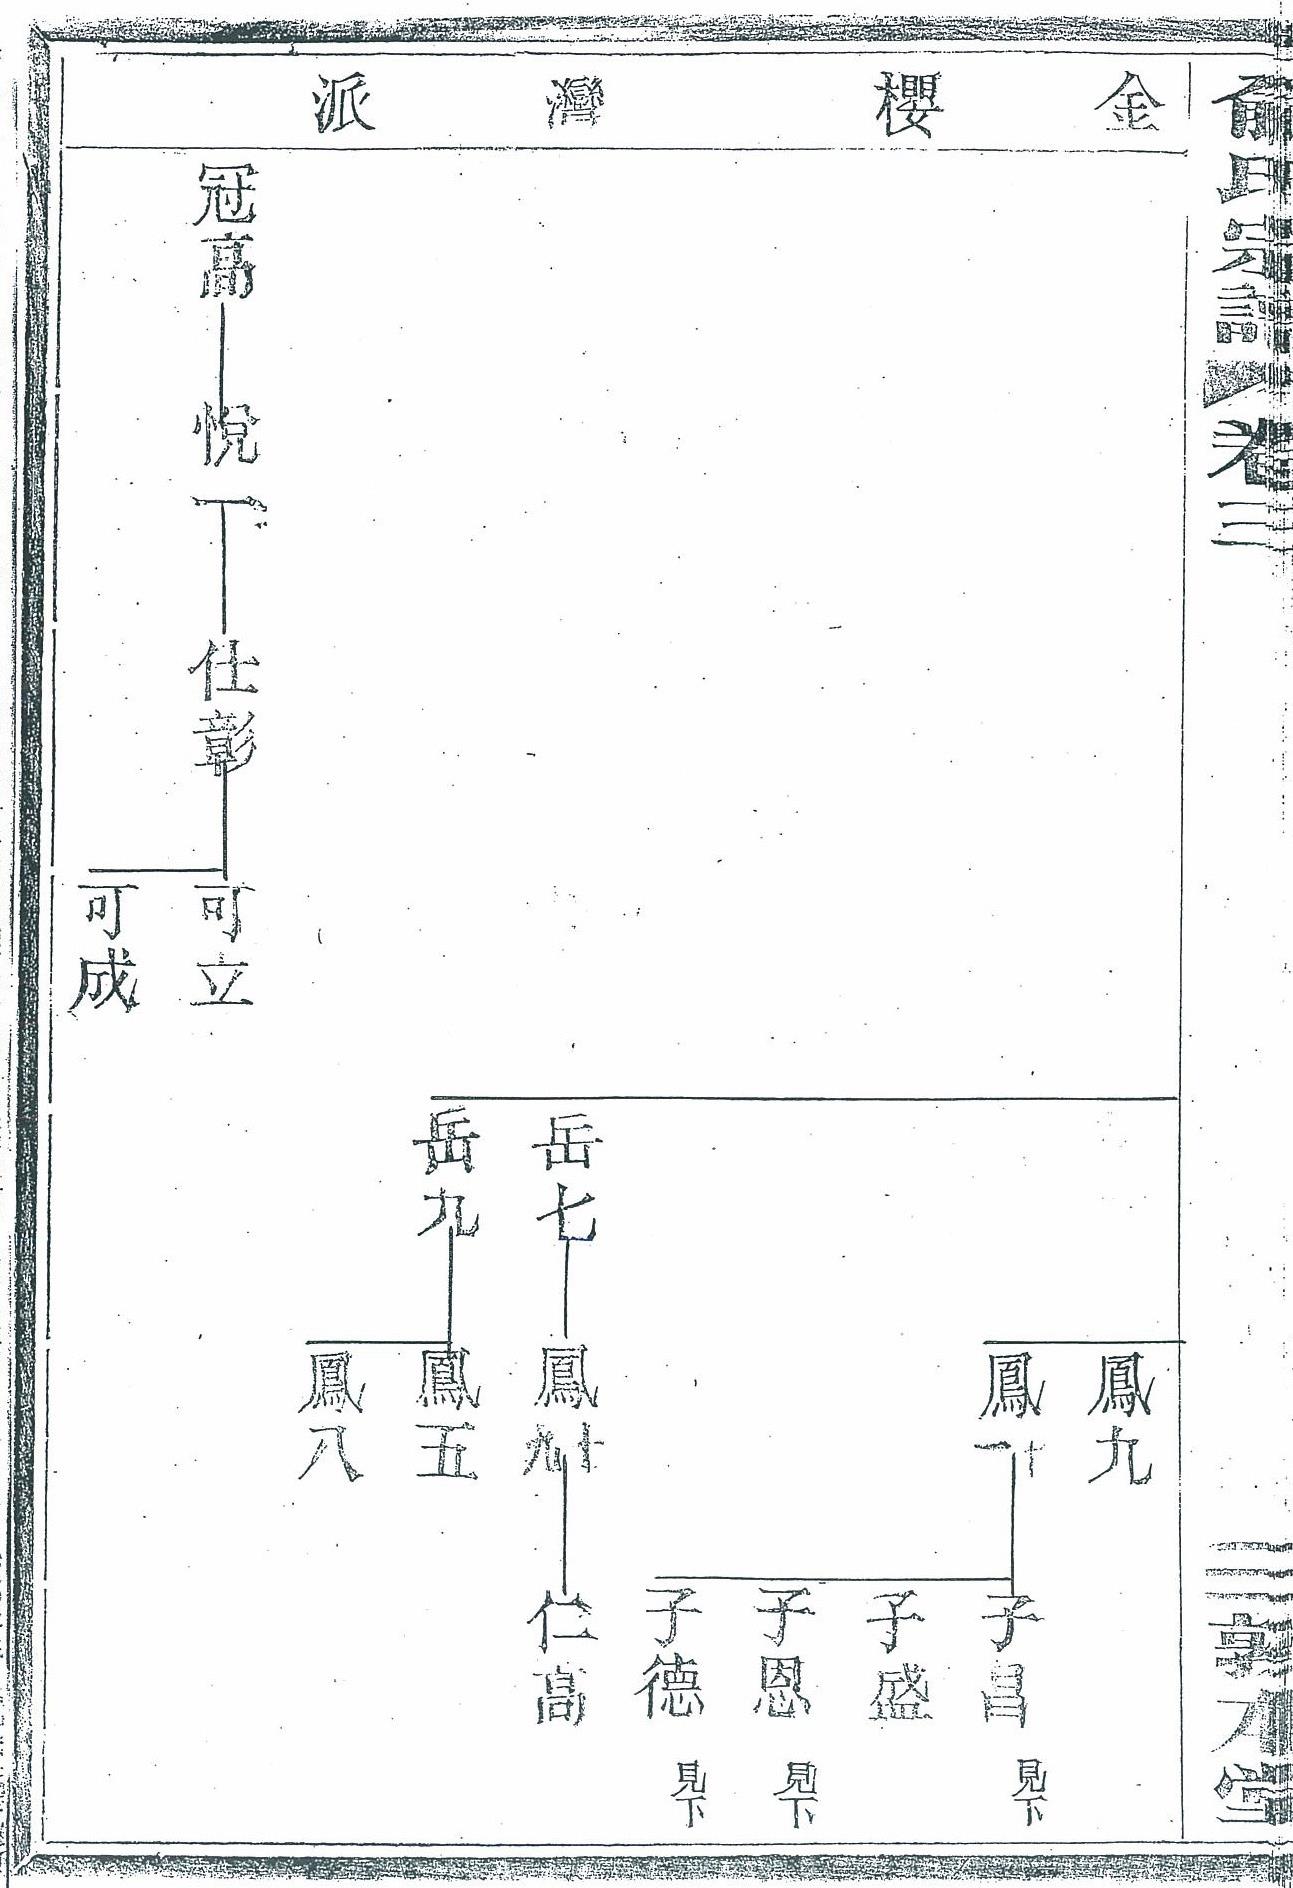 俞氏宗譜
卷三
三
敦本堂
金櫻灣派
鳳九
鳳十一
子昌 見下
子盛
子恩 見下
子德 見下
岳七
鳳
仁高
岳九
鳳五
鳳八
冠高
悅一
仕彰
可立
可成